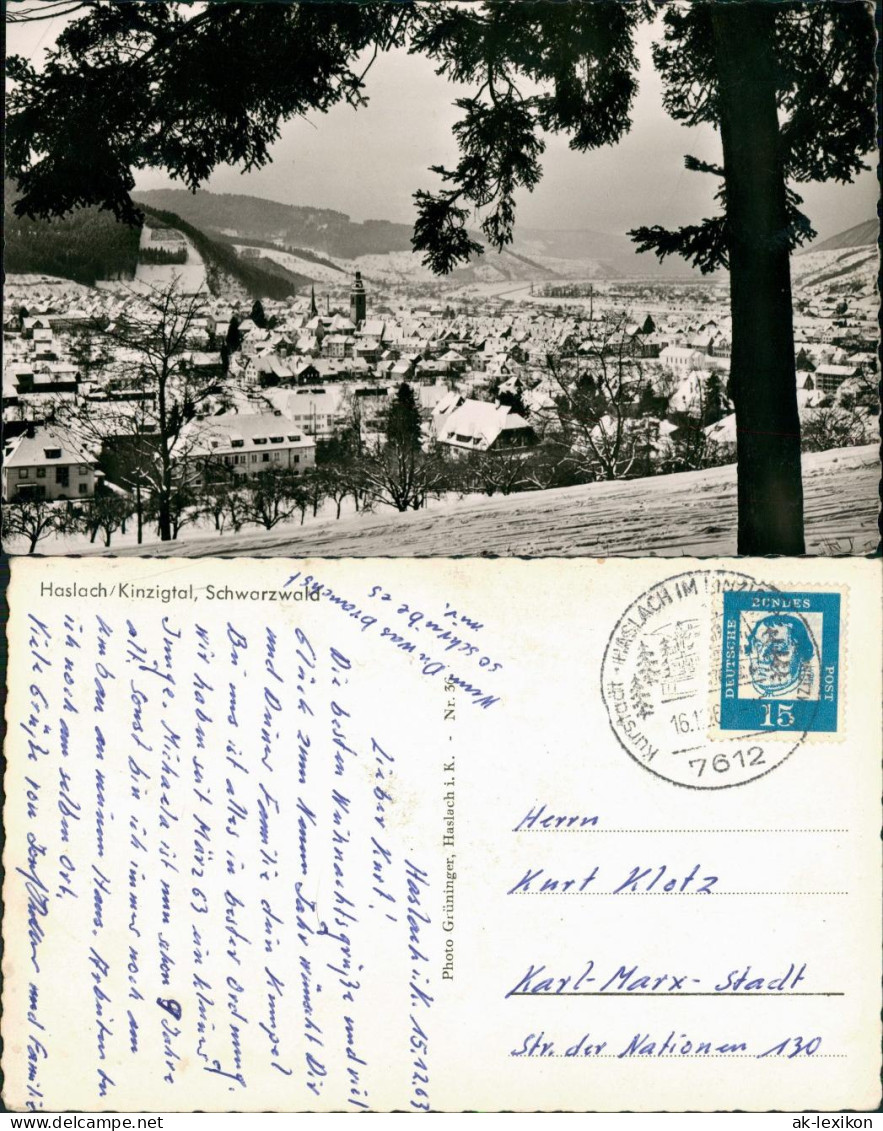 Haslach/Kinzigtal, Schwarzwald
Haslach i. K. 15.12.63
Lieber Kurt!
Die besten Weihnachtsgrüße und viel
Glück zum Neuen Jahr wünscht Dir
und Deiner Familie dein Kumpel
Bei uns ist alles in bester Ordnung.
Wir haben seit März 63 ein kleiner
Junge. Michaela ist nun schon 9 Jahre
alt. Sonst bin ich immer noch am
Umbau an meinem Haus. Arbeiten tu
ich noch am selben Ort.
Viele Grüße von und Familie
Wenn Du was brauchst
so schreibe es
mir.
Photo Grüninger, Haslach i. K. - Nr. 3
Kurstadt HASLACH IM KINZIG
16.12.6
7612
DEUTSCHE BUNDES POST
15
Herrn
Kurt Klotz
Karl-Marx-Stadt
Str. der Nationen 130
www.delcampe.net
ak-lexikon